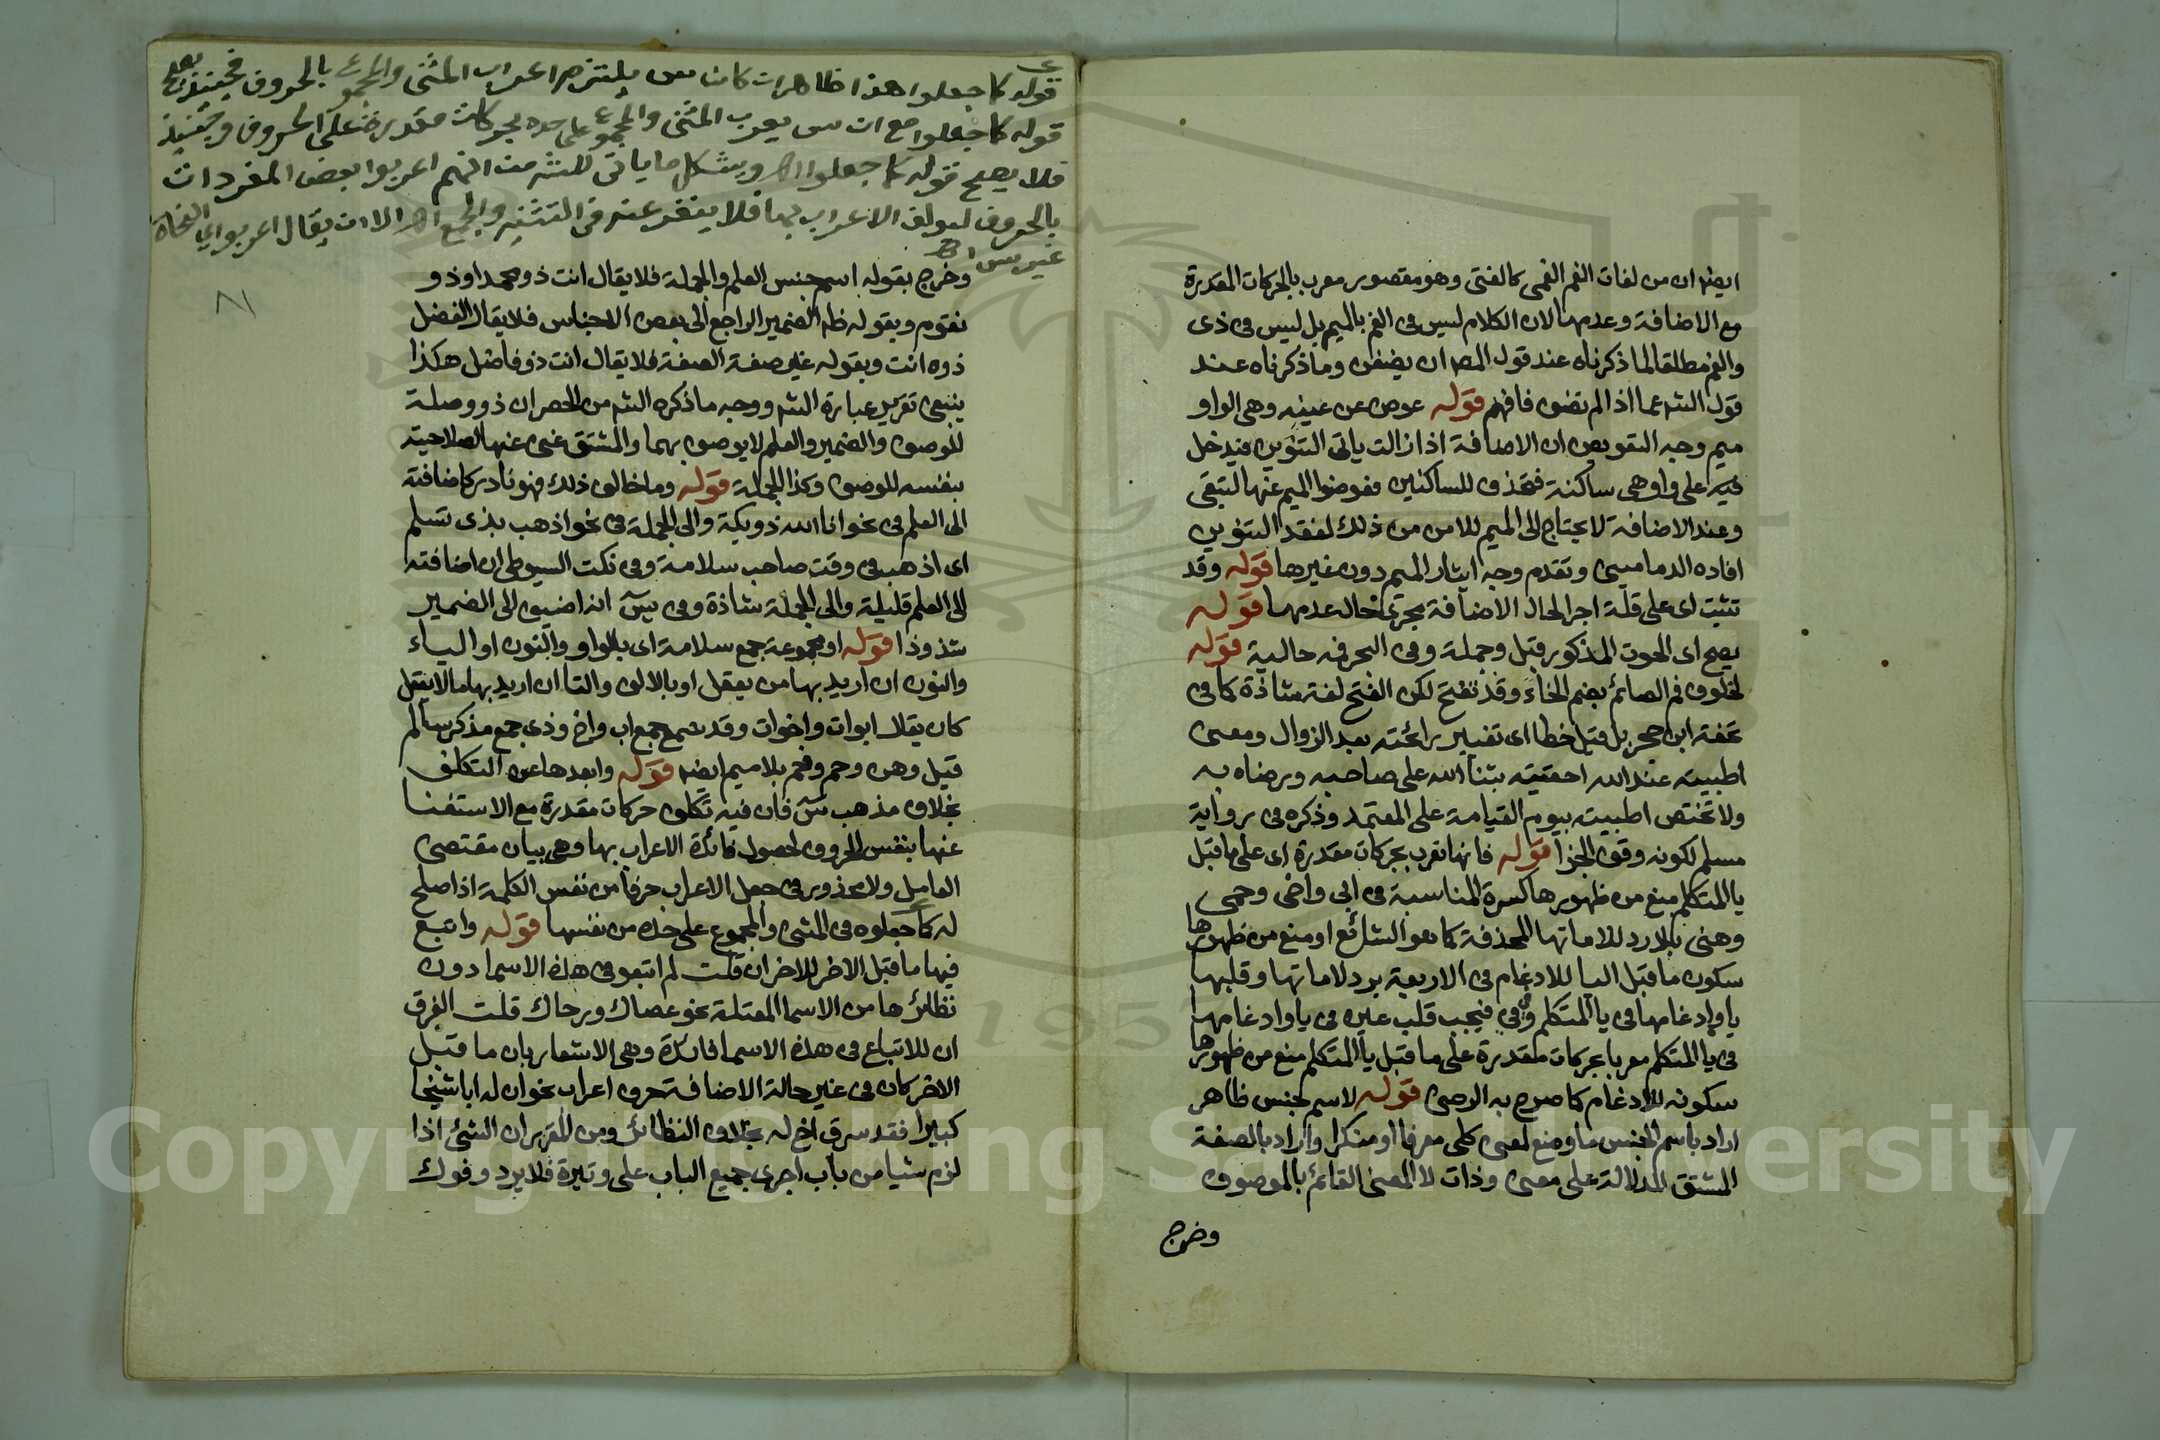 ايضا ان من لغات الفم الفمى كالفتى وهو مقصور معرب بالحركات المقدرة
مع الاضافة وعدمها لان الكلام ليس فى الفم بالميم بل ليس فى ذى
والفم مطلقا لما ذكرناه عند قول المص ان يضفن وما ذكرناه عند
قول الش عما اذا لم تضف فافهم قوله عوض عن عينه وهى الواو
ميم وجه التعويض ان الاضافة اذا زالت ياتى التنوين فيدخل
فيه على واو هى ساكنة فتحذف للساكنين فعوضوا الميم عنها لتبقى
وعند الاضافة لا يحتاج الى الميم للامن من ذلك لفقد التنوين
افاده الدمامينى وتقدم وجه ايثار الميم دون غيرها قوله وقد
تثبت اى على قلة اجراء لحال الاضافة مجرى حال عدمها قوله
يصح اى الحوت المذكور قبل وجملة وفى البحر فمه حالية قوله
لخلوف فم الصائم بضم الخاء وقد تفتح لكن الفتح لغة شاذة كما فى
تحفة ابن حجر بل قيل خطا اى تغيير رائحته بعد الزوال ومعنى
اطيبيته عند الله احقيته بثناء الله على صاحبه ورضاه به
ولا تختص اطيبيته بيوم القيامة على المعتمد وذكره فى رواية
مسلم لكونه وقت الجزا قوله فانها تعرب بحركات مقدرة اى على ما قبل
يا المتكلم منع من ظهورها كسرة المناسبة فى ابى واخى وحمى
وهنى بلا رد للاماتها المحذوفة كما هو الشائع او منع من ظهورها
سكون ما قبل اليا للادغام فى الاربعة برد لاماتها وقلبها
يا وادغامها فى يا المتكلم وفى فى فيجب قلب عينه فى يا وادغامها
فى يا المتكلم معربا بحركات مقدرة على ما قبل يا المتكلم منع من ظهورها
سكونه للادغام كما صرح به الرضى قوله لاسم جنس ظاهر
اراد باسم الجنس ما وضع لمعنى كلى معرفا او منكرا واراد بالصفة
المشتق للدلالة على معنى وذات لا المعنى القائم بالموصوف
وخرج
قوله كما جعلوا هذا ظاهر ان كان س يلتزم اعراب المثنى والمجموع بالحروف فحينئذ يصح
قوله كما جعلوا مع ان س يعرب المثنى والمجموع على حده بحركات مقدرة على الحروف وحينئذ
فلا يصح قوله كما جعلوا اهـ ويشكل ما ياتى للش من انهم اعربوا بعض المفردات
بالحروف ليولف الاعراب بها فلا ينفر عنه فى التثنيه والجمع اهـ الا ان يقال اعربوا اى النحاة
غير س اهـ
وخرج بقوله اسم جنس العلم والجملة فلا يقال انت ذو محمد او ذو
تقوم وبقوله ظاهر الضمير الراجع الى بعض الاجناس فلا يقال الفضل
ذوه انت وبقوله غير صفة الصفة فلا يقال انت ذو فاضل هكذا
ينبغى تقرير عبارة الش ووجه ما ذكره الش من الحصر ان ذو وصلة
للوصف والضمير والعلم لا يوصف بهما والمشتق غنى عنها لصلاحيته
بنفسه للوصف وكذا الجملة قوله وما خالف ذلك فهو نادر كاضافته
الى العلم فى نحو انا الله ذو بكة والى الجملة فى نحو اذهب بذى تسلم
اى اذهب فى وقت صاحب سلامة وفى نكت السيوطى ان اضافته
الى العلم قليلة والى الجملة شاذة وفى يس انه اضيف الى الضمير
شذوذا قوله او مجموعة جمع سلامة اى بالواو والنون او الياء
والنون ان اريد بها من يعقل او بالالف والتا ان اريد بها ما لا يعقل
كان يقال ابوات واخوات وقد سمع جمع اب واخ وذى جمع مذكر سالم
قيل وهن وحم وفم بلا ميم ايضا قوله وابعدها عن التكلف
بخلاف مذهب س فان فيه تكلف حركات مقدرة مع الاستغنا
عنها بنفس الحروف لحصول فائدة الاعراب بها وهى بيان مقتضى
العامل ولا محذور فى جعل الاعراب حرفا من نفس الكلمة اذا صلح
له كما جعلوه فى المثنى والمجموع على حده من نفسها قوله واتبع
فيها ما قبل الاخر للاخر ان قلت لم اتبعو فى هذه الاسما دون
نظائرها من الاسما المعتلة نحو عصاك ورحاك قلت الفرق
ان للاتباع فى هذه الاسما فائدة وهى الاشعار بان ما قبل
الاخر كان فى غير حالة الاضافة حرف اعراب نحو ان له ابا شيخا
كبيرا فقد سرق اخ له بخلاف النظائر ومن المقرر ان الشئ اذا
لزم شيا من باب اجرى جميع الباب على وتيرة فلا يرد وفوك
Copyright © King Saud University
1957